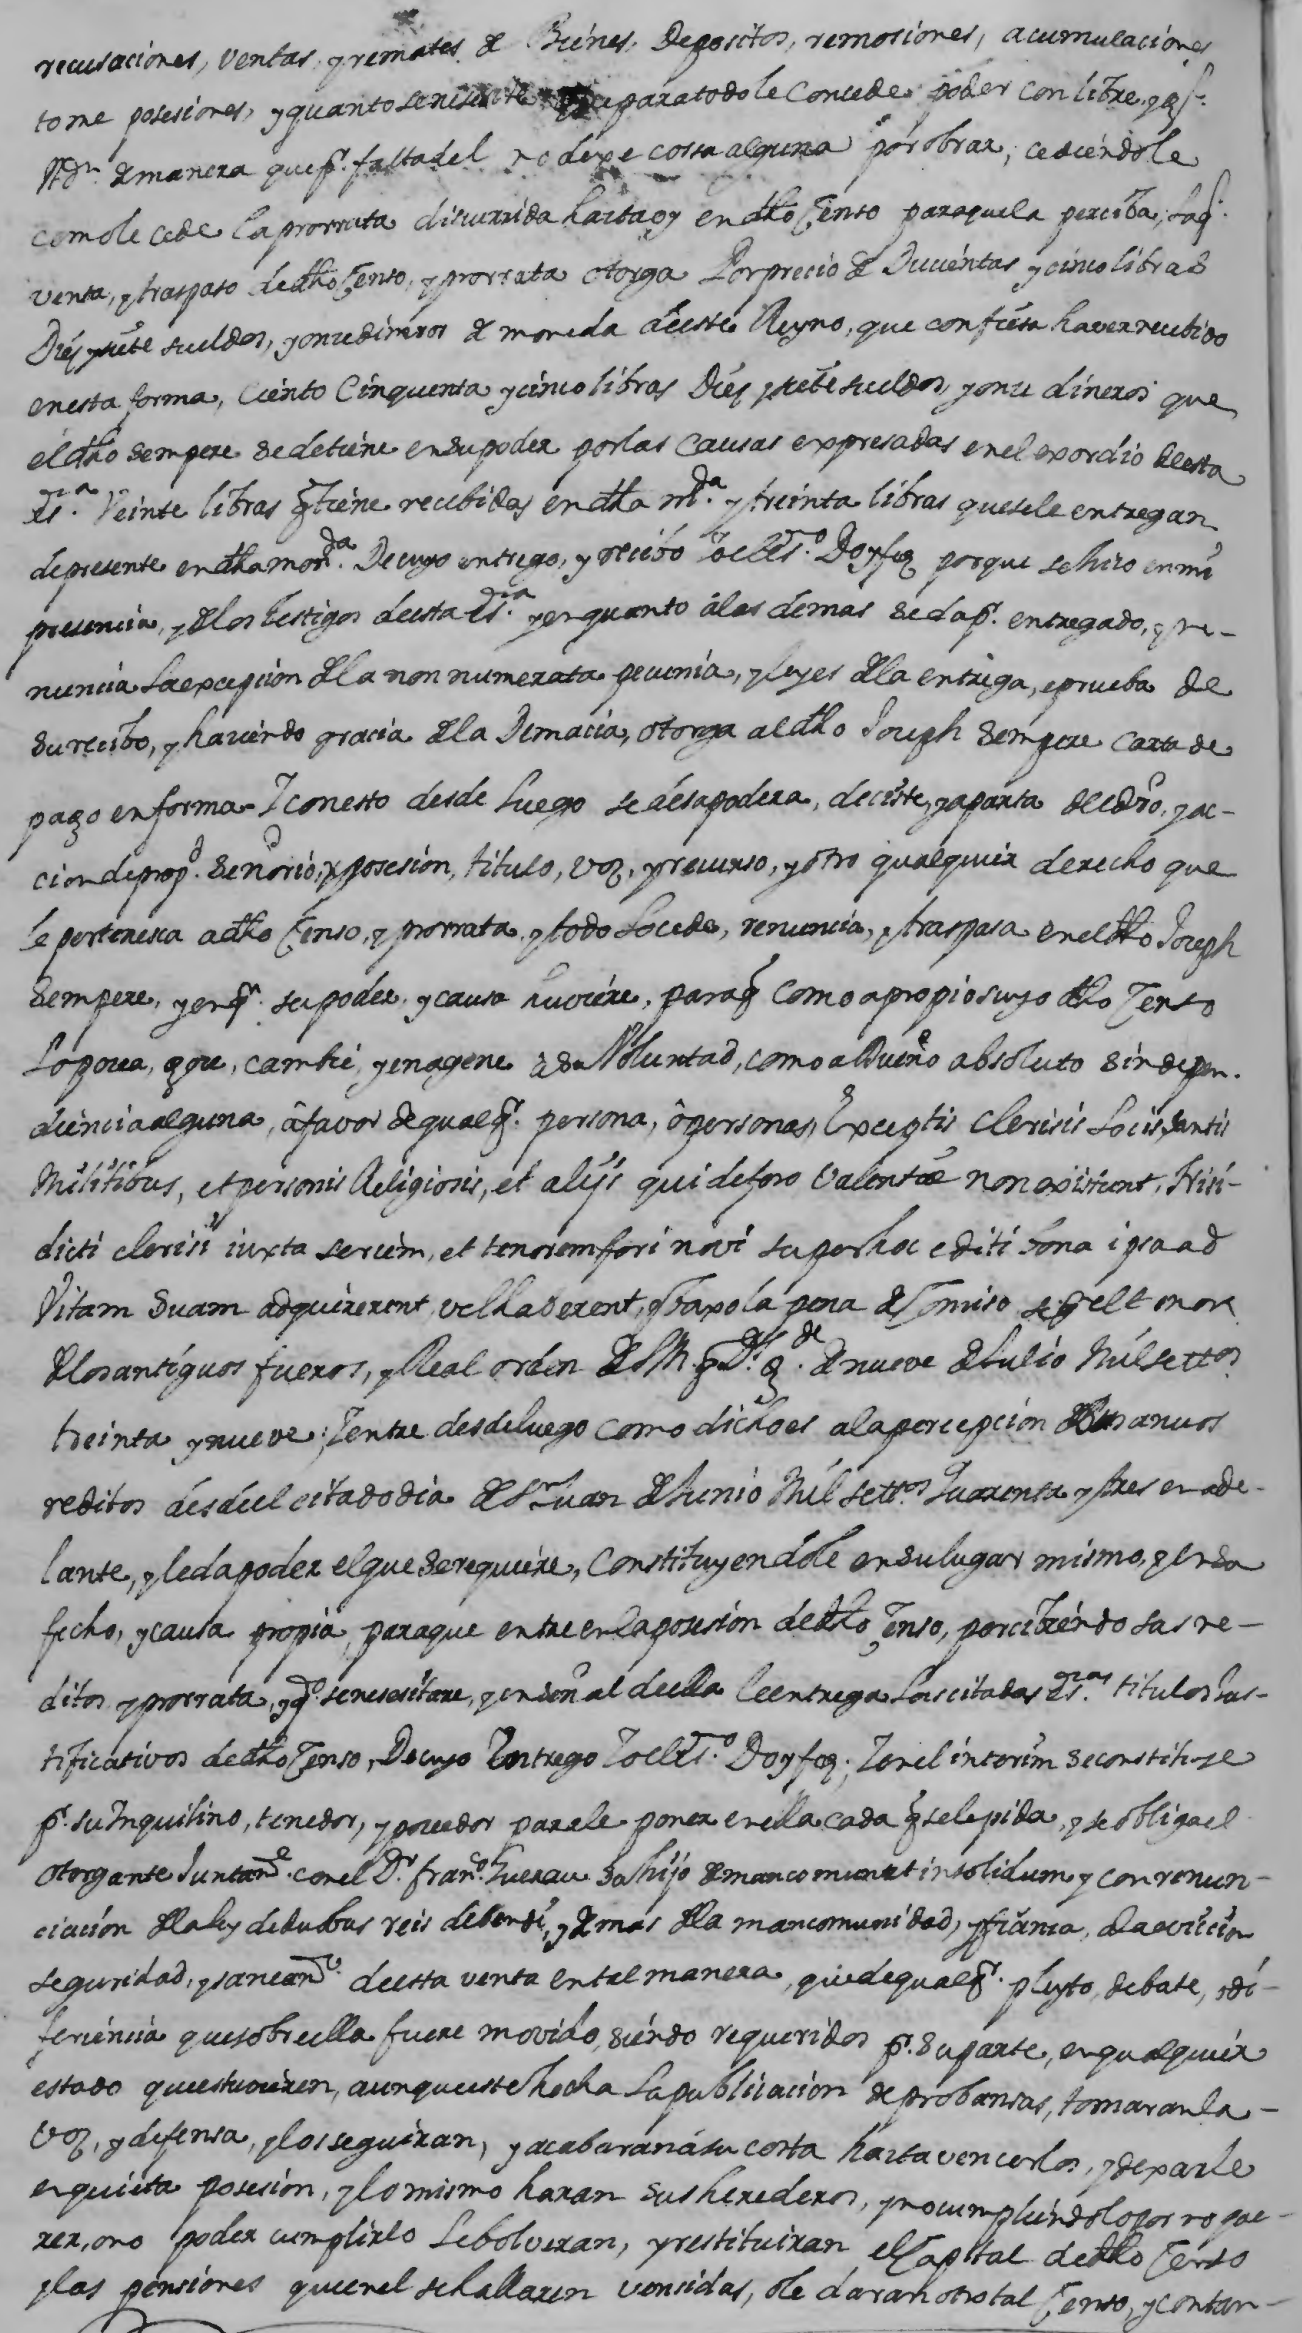 recusaciones, ventas, y remates de Bienes, Depositos, remosiones, acumulaciones
tome posesiones, y quanto se nesesite para todo le concede poder con libre, y gl.
Adn. de manera que pr. falta del no dexe cossa alguna por obrar, cediendole
como le cede la prorrata discurrida hasta oy en dho Censo para que la perciba, La ql.
venta, y traspaso de dho Censo, y prorrata otorga Por precio de Ducientas y cinco libras
Diez y siete sueldos, y onze dineros de moneda de este Reyno, que confiesa haver recibido
en esta forma, Ciento Cinquenta y cinco libras Diez y siete sueldos, y onze dineros que
el dho Sempere se detiene en su poder por las causas expresadas en el exordio de esta
Es.ra Veinte libras q tiene recibidas en dha m.da y treinta libras que se le entregan
de presente en dha mon.da De cuyo entrego, y recibo Yo el Es.no Doy fee porque se hizo en mi
presencia, y de los testigos de esta Es.ra y en quanto á las demas se da pr. entregado, y re-
nuncia La excepcion de la non numerata pecunia, y leyes de la entrega, e prueba de
su recibo, y haciendo gracia de la Demacia, otorga al dho Joseph Sempere carta de
pago en forma- Y con esto desde luego se desapodera, deciste, y aparta de el dro. y ac-
cion de prop.d señorio, y posesion, titulo, voz, y recurso, y otro qualquier derecho que
le pertenesca a dho Censo, y prorrata, y todo Lo cede, renuncia, y traspasa en el dho Joseph
Sempere, y en qn. su poder, y causa huviere, para q como a propio suyo dho Censo
Lo posea, goze, cambie, y enagene á su Voluntad, como a Dueño absoluto sin depen-
dencia alguna, á favor de qualqr. persona, ó personas, Exceptis Clerisis Locis Santis
Militibus, et personis Religiosis, et alijs qui de foro Valentiæ non existunt, Nisi-
dicti clerisi iuxta seriem, et tenorem fori novi super hoc editi bona ipsa ad
Vitam Suam adquirerent, vel haberent, y baxo la pena de Comiso segn el tenor
de los antiguos fueros, y Real orden de S.M. q D.s g.de de nueve de Julio Mil settos
treinta y nueve; Y entre desde luego como dicho es a la percepcion de los anuos
reditos desde el citado dia de Sn Juan de Junio Mil settos Quarenta y tres en ade-
lante, y le da poder el que se requiere, Constituyendole en su lugar mismo, y en su
fecho, y causa propia, para que entre en la posesion de dho Censo, percibiendo sus re-
ditos, y prorrata, y qdo. se nesesitare, y en señal de ella le entrega Las citadas Es.ras titulos Jus-
tificativos de dho Censo, De cuyo Entrego Yo el Es.no Doy fee; Y en el interim se constituye
pr. su Inquilino, tenedor, y posedor para le poner en ella cada q se le pida, y se obliga el
otorgante Juntam.e con el Dr. Fran.co Guerau su hijo de mancomun et insolidum y con renun-
ciacion de la ley de duobus reis debendi, y demas de la mancomunidad, y fianza, á la eviccion
seguridad, y saneam.to de esta venta en tal manera, que de qualqr. pleyto, debate, o di-
feriencia que sobre ella fuere movido, siendo requeridos pr. su parte, en qualquier
estado que estuvieren, aunque este hecha La publicacion de probansas, tomaran la
voz, y defensa, y los seguiran, y acabaran á su costa hasta vencerlos, y dexarle
en quieta posesion, y lo mismo haran sus herederos, y no cumpliendolo por no que-
rer, o no poder cumplirlo Le bolveran, y restituiran el Capital de dho Censo
y las pensiones que en el se hallaren vensidas, o le daran otro tal Censo, y con tan-